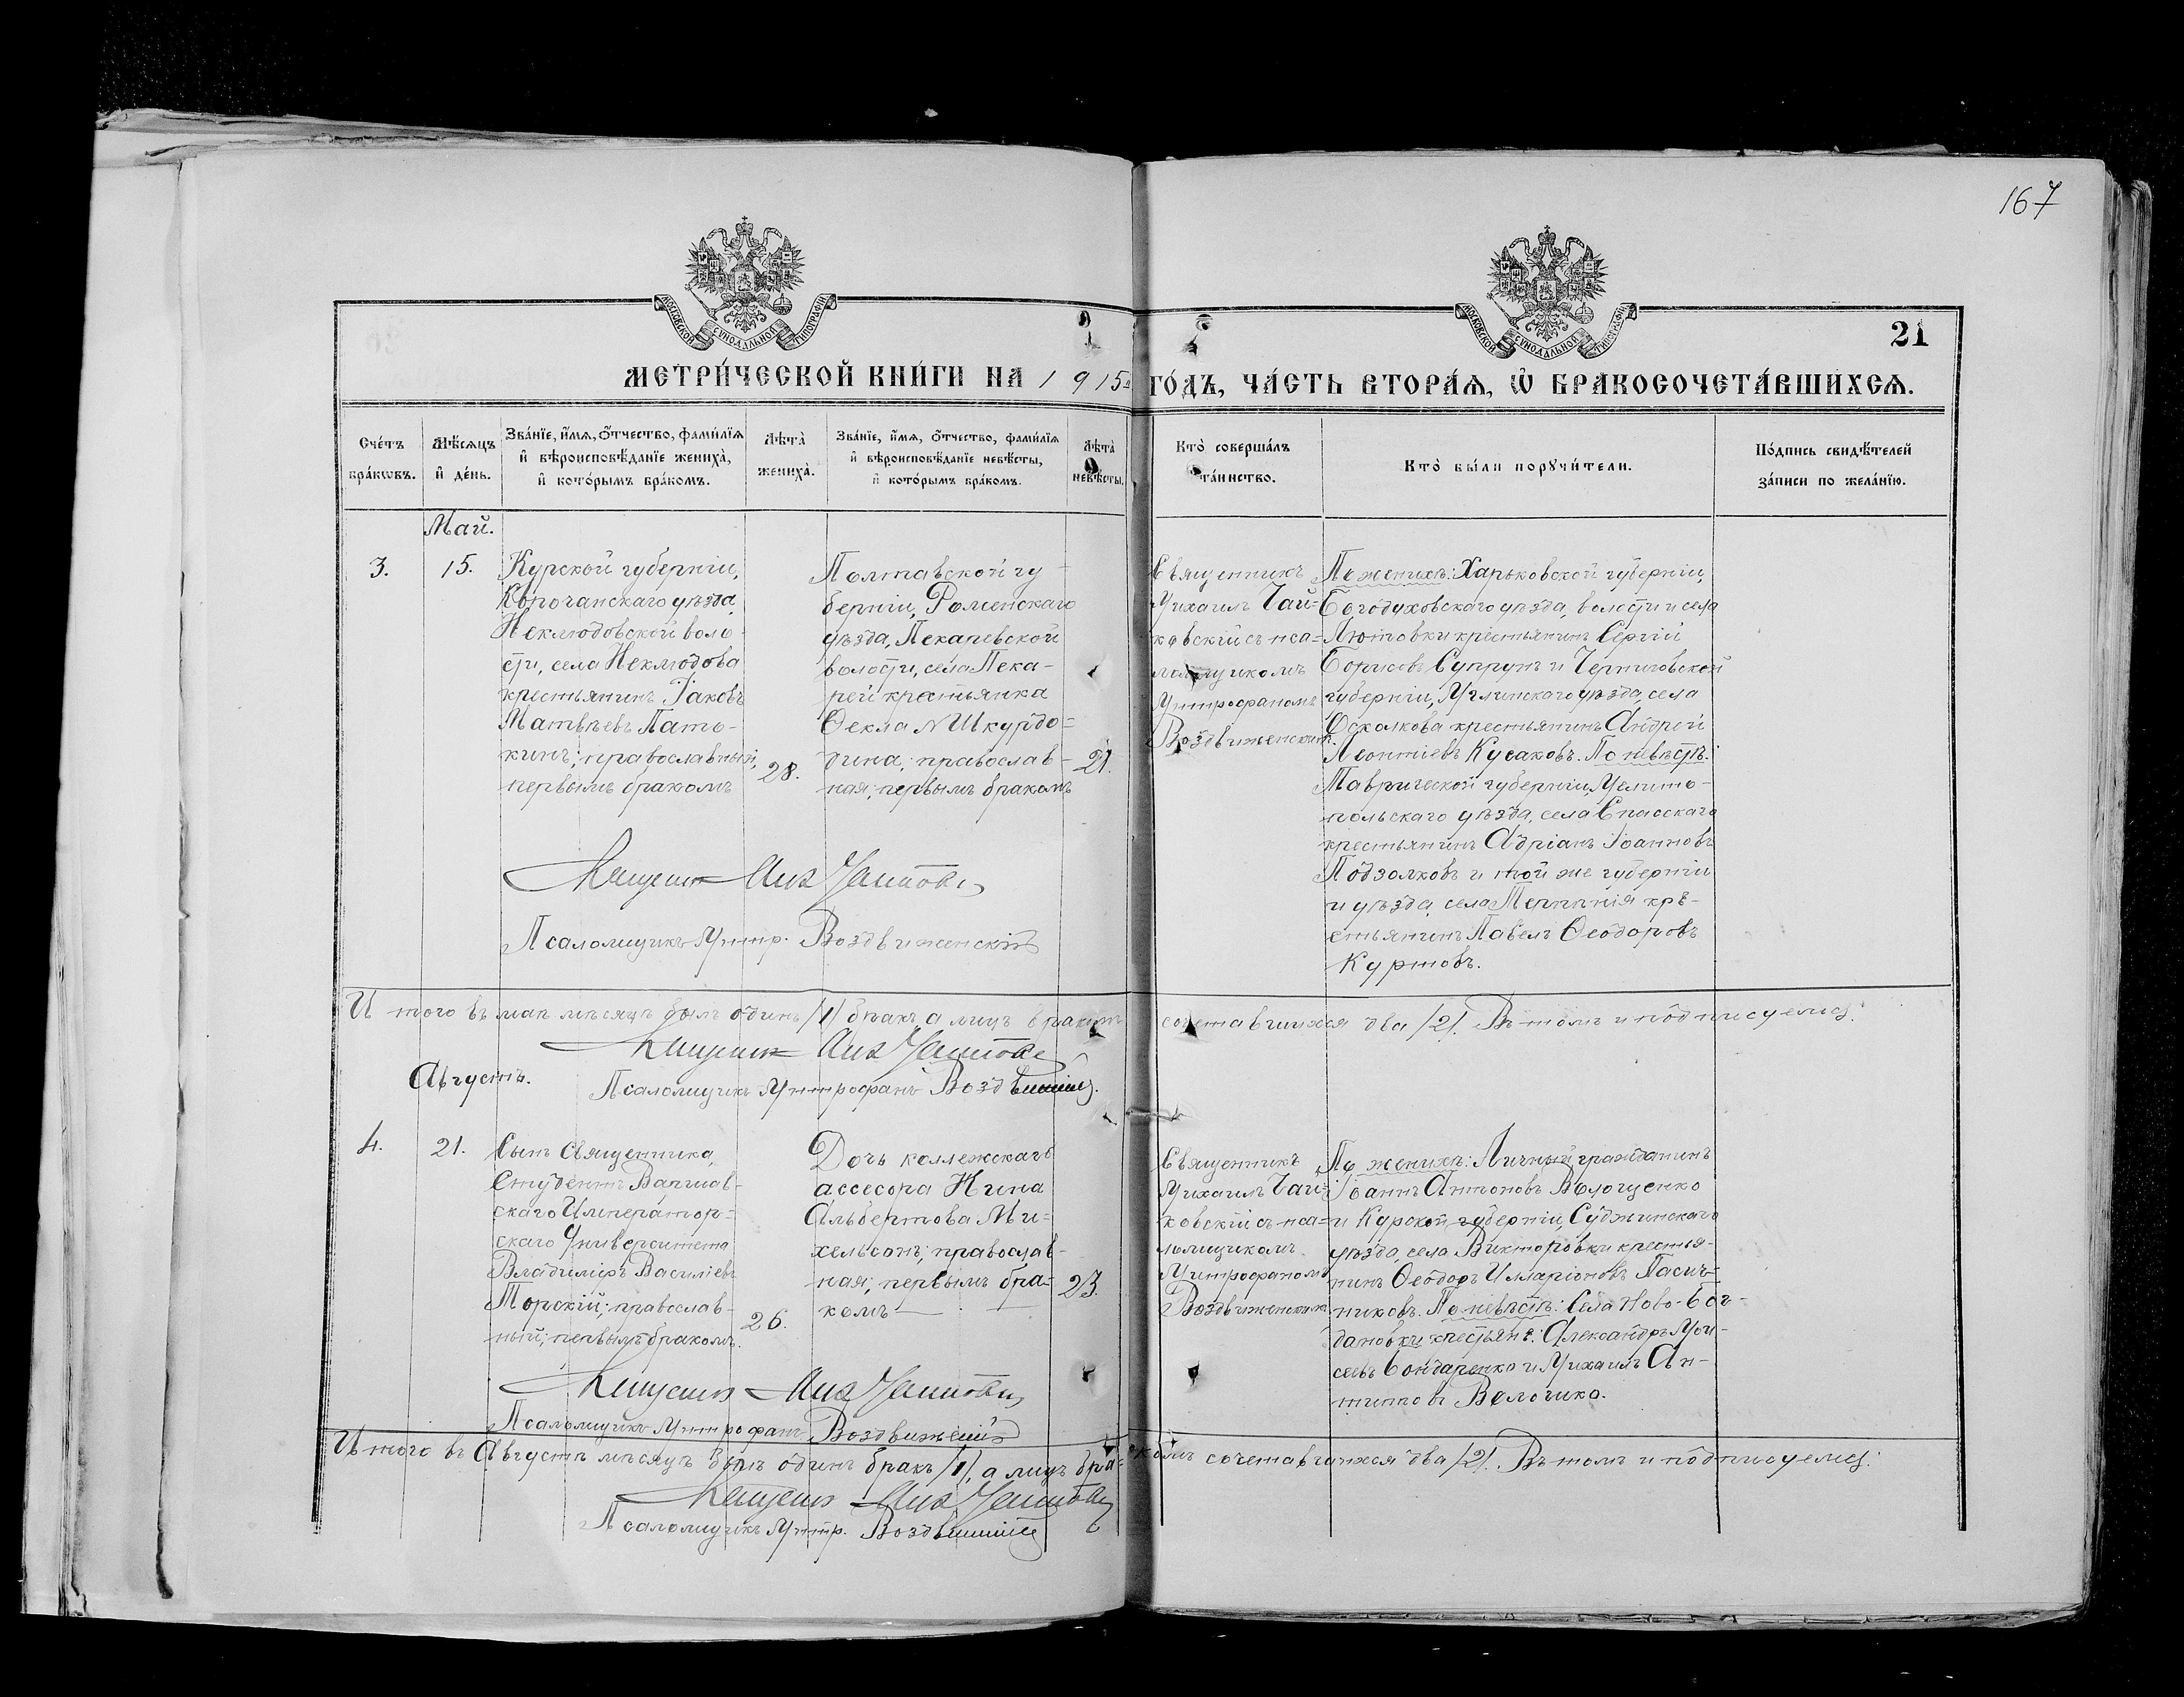 167
МОСКОВСКОЙ СУНОДАЛЬНОЙ ТИПОГРАФІИ
МОСКОВСКОЙ СУНОДАЛЬНОЙ ТИПОГРАФІИ
21
МЕТРИ́ЧЕСКОЙ КНИ́ГИ НА 1915 ГО́ДЪ, ЧА́СТЬ ВТОРА́Ѧ, Ѽ БРАКОСОЧЕТА́ВШИХСѦ.
Сче́тъ
бра́кѡвъ.
Мѣ́сѧцъ
и҆ де́нь.
Зва́нїе, и҆́мѧ, ѻ҆́тчество, фами́лїѧ
и҆ вѣроисповѣ́данїе жениха̀,
и҆ кото́рымъ бра́комъ.
Лѣ́та̀
жениха̀.
Зва́нїе, и҆́мѧ, ѻ҆́тчество, фами́лїѧ
и҆ вѣроисповѣ́данїе невѣ́сты,
и҆ кото́рымъ бра́комъ.
Лѣ́та̀
невѣ́сты.
Кто̀ соверша́лъ
та́инство.
Кто̀ бы́ли порꙋчи́тели.
По́дпись свидѣ́телей
за́писи по жела́нїю.
Май.
3.
15.
Курской губерніи,
Корочанскаго уѣзда,
Неклюдовской воло-
сти, села Неклюдова
крестьянинъ Іаковъ
Матвѣевъ Пато-
кинъ; православный,
первымъ бракомъ
28.
Полтавской гу-
берніи, Роменскаго
уѣзда, Пекаревской
волости, села Пека-
рей крестьянка
Ѳекла N Шкурдо-
дина; православ-
ная; первымъ бракомъ
21.
Священникъ
Михаилъ Чай-
ковскій съ пса-
ломщикомъ
Митрофаномъ
Воздвиженскимъ.
По женихѣ: Харьковской губерніи,
Богодуховскаго уѣзда, волости и села
Лютовки крестьянинъ Сергій
Борисовъ Супрунъ и Черниговской
губерніи, Мглинскаго уѣзда, села
Осколкова крестьянинъ Андрей
Леонтіевъ Кусаковъ. По невѣстѣ:
Таврической губерніи, Мелито-
польскаго уѣзда, села Спасскаго
крестьянинъ Адріанъ Іоанновъ
Подзолковъ и той же губерніи
и уѣзда, села кре-
стьянинъ Павелъ Ѳеодоровъ
Куртовъ.
Священникъ Мих Чайковскій
Псаломщикъ Митр. Воздвиженскій
Итого въ маѣ мѣсяцѣ былъ одинъ /1/ бракъ, а лицъ бракомъ сочетавшихся два /2/. Въ томъ и подписуемся:
Священникъ Мих Чайковскій
Псаломщикъ Митрофанъ Воздвиженскій.
Августъ.
4.
21.
Сынъ священника,
студентъ Варшав-
скаго Император-
скаго Университета
Владиміръ Василіевъ
Торскій; православ-
ный; первымъ бракомъ.
26.
Дочь коллежскаго
ассесора Нина
Альбертова Ми-
хельсонъ; православ-
ная; первымъ бра-
комъ
23.
Священникъ
Михаилъ Чай-
ковскій съ пса-
ломщикомъ
Митрофаномъ
Воздвиженскимъ
По женихѣ: Личный гражданинъ
Іоаннъ Антоновъ Волощенко
и Курской губерніи, Суджинскаго
уѣзда, села Викторовки крестья-
нинъ Ѳеодоръ Илларіоновъ Пасич-
никовъ. По невѣстѣ: Села Ново-Бог-
дановки крестьяне: Александръ Мои-
сеевъ Бондаренко и Михаилъ Ан-
типовъ Волочико.
Священникъ Мих Чайковскій
Псаломщикъ Митрофанъ Воздвиженскій
Итого въ Августѣ мѣсяцѣ былъ одинъ бракъ /1/, а лицъ бра-комъ сочетавшихся два /2/. Въ томъ и подписуемся:
Священникъ Мих Чайковскій
Псаломщикъ Митр. Воздвиженскій